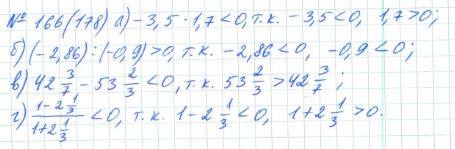 № 166(178) а) -3,5 · 1,7 < 0, т.к. -3,5 < 0, 1,7 > 0;
б) (-2,86) : (-0,9) > 0, т.к. -2,86 < 0, -0,9 < 0;
в) 42 3/7 - 53 2/3 < 0, т.к. 53 2/3 > 42 3/7;
г) (1-2 1/3)/(1+2 1/3) < 0, т.к. 1-2 1/3 < 0, 1+2 1/3 > 0.